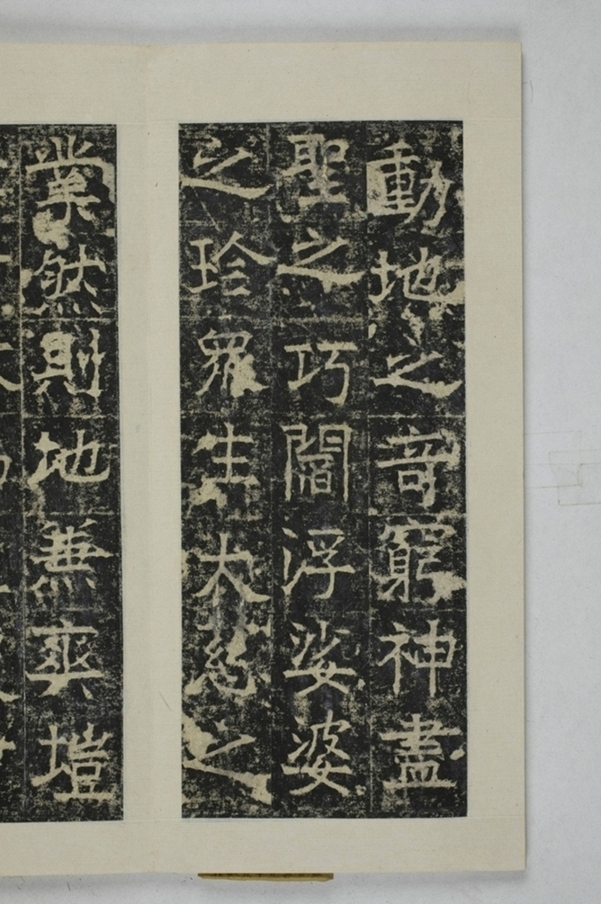 動地之竒窮神盡
聖之巧閻浮娑婆
之珍眾生大慈之
業然則地兼爽塏